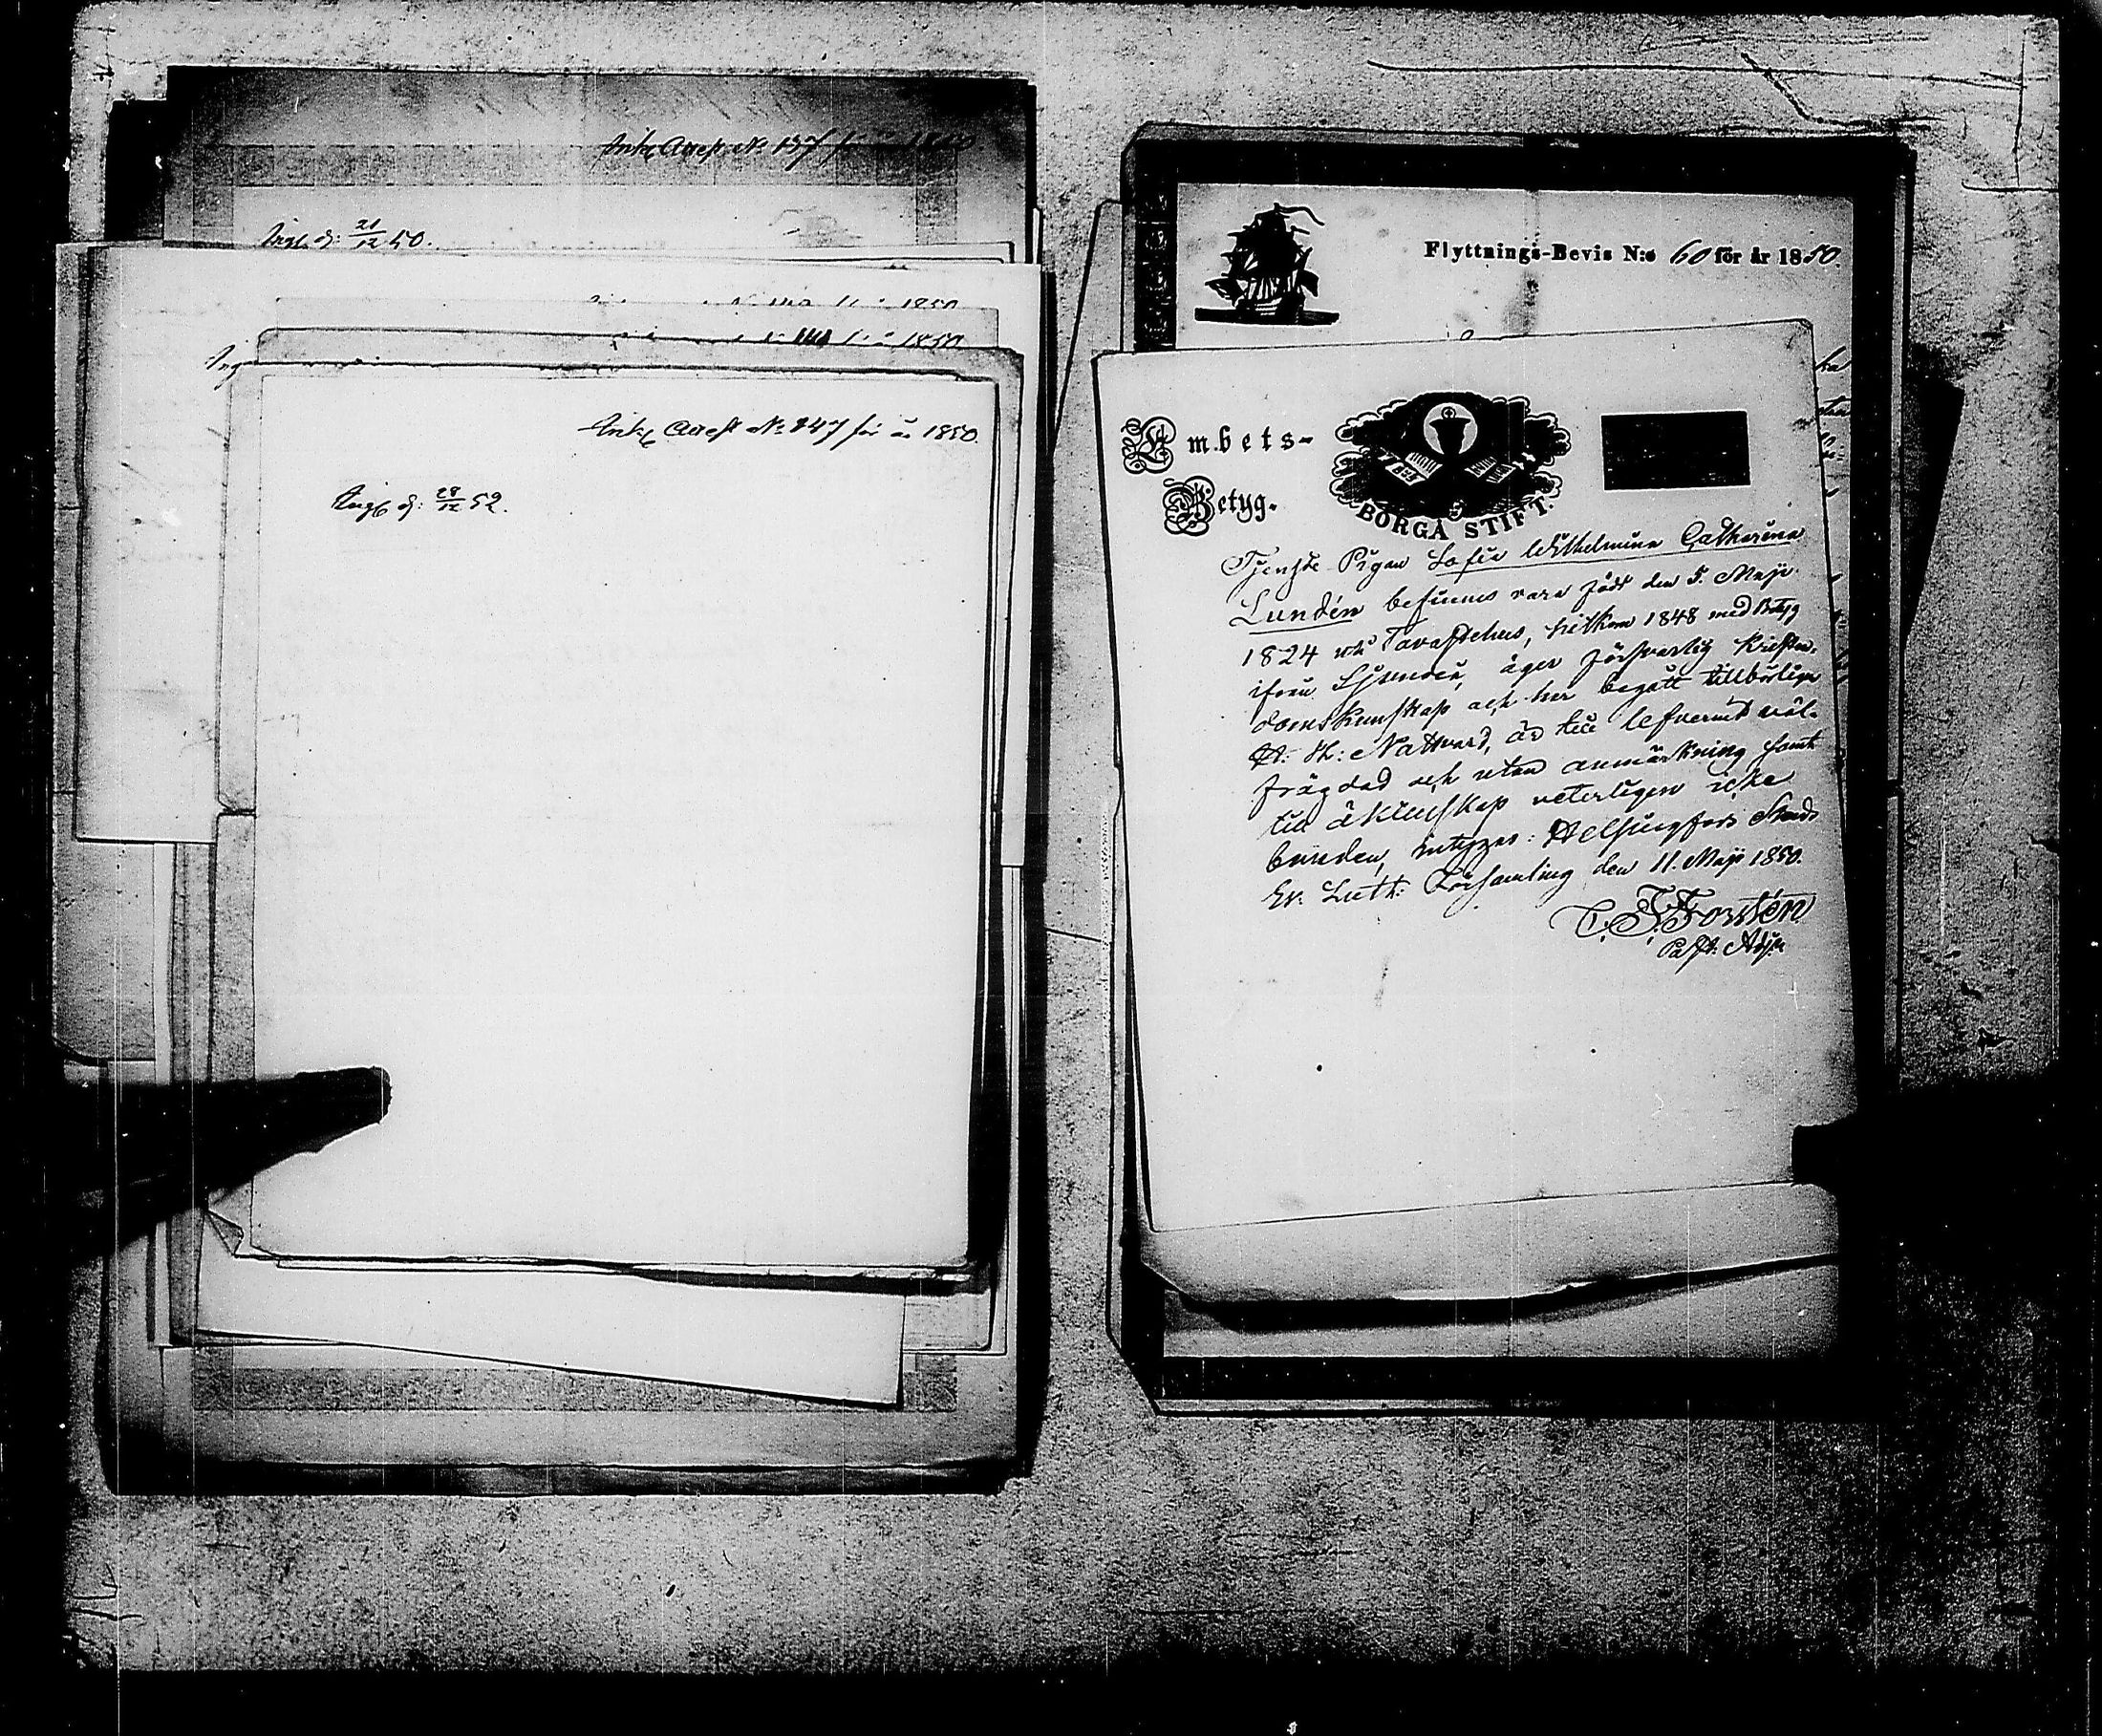 Ink. Attest No 137
Ingf. d: 21/12 50.
1850
1850
Ink. Attest No 147 för år 1850.
Ingf. d: 28/12 52.
Flyttnings-Bevis N:o 60 för år 1850.
Embets-
Betyg.
BORGÅ STIFT.
Tjenste Pigan Sofia Wilhelmina Catharina
Lundén befinnes vara född den 5. Maji
1824 uti Tavastehus, hitkom 1848 med Betyg
ifrån Sjundeå, äger försvarlig kristen-
domskunskap och har begått tillbörligen
H. H: Nattvard, är till lefvernet väl-
frägdad och utan anmärkning samt
till äktenskap veterligen icke
bunden, intygas: Helsingfors Stads
Ev. Luth: Församling den 11. Maji 1850.
C. F. Forstén
Past: Adj: